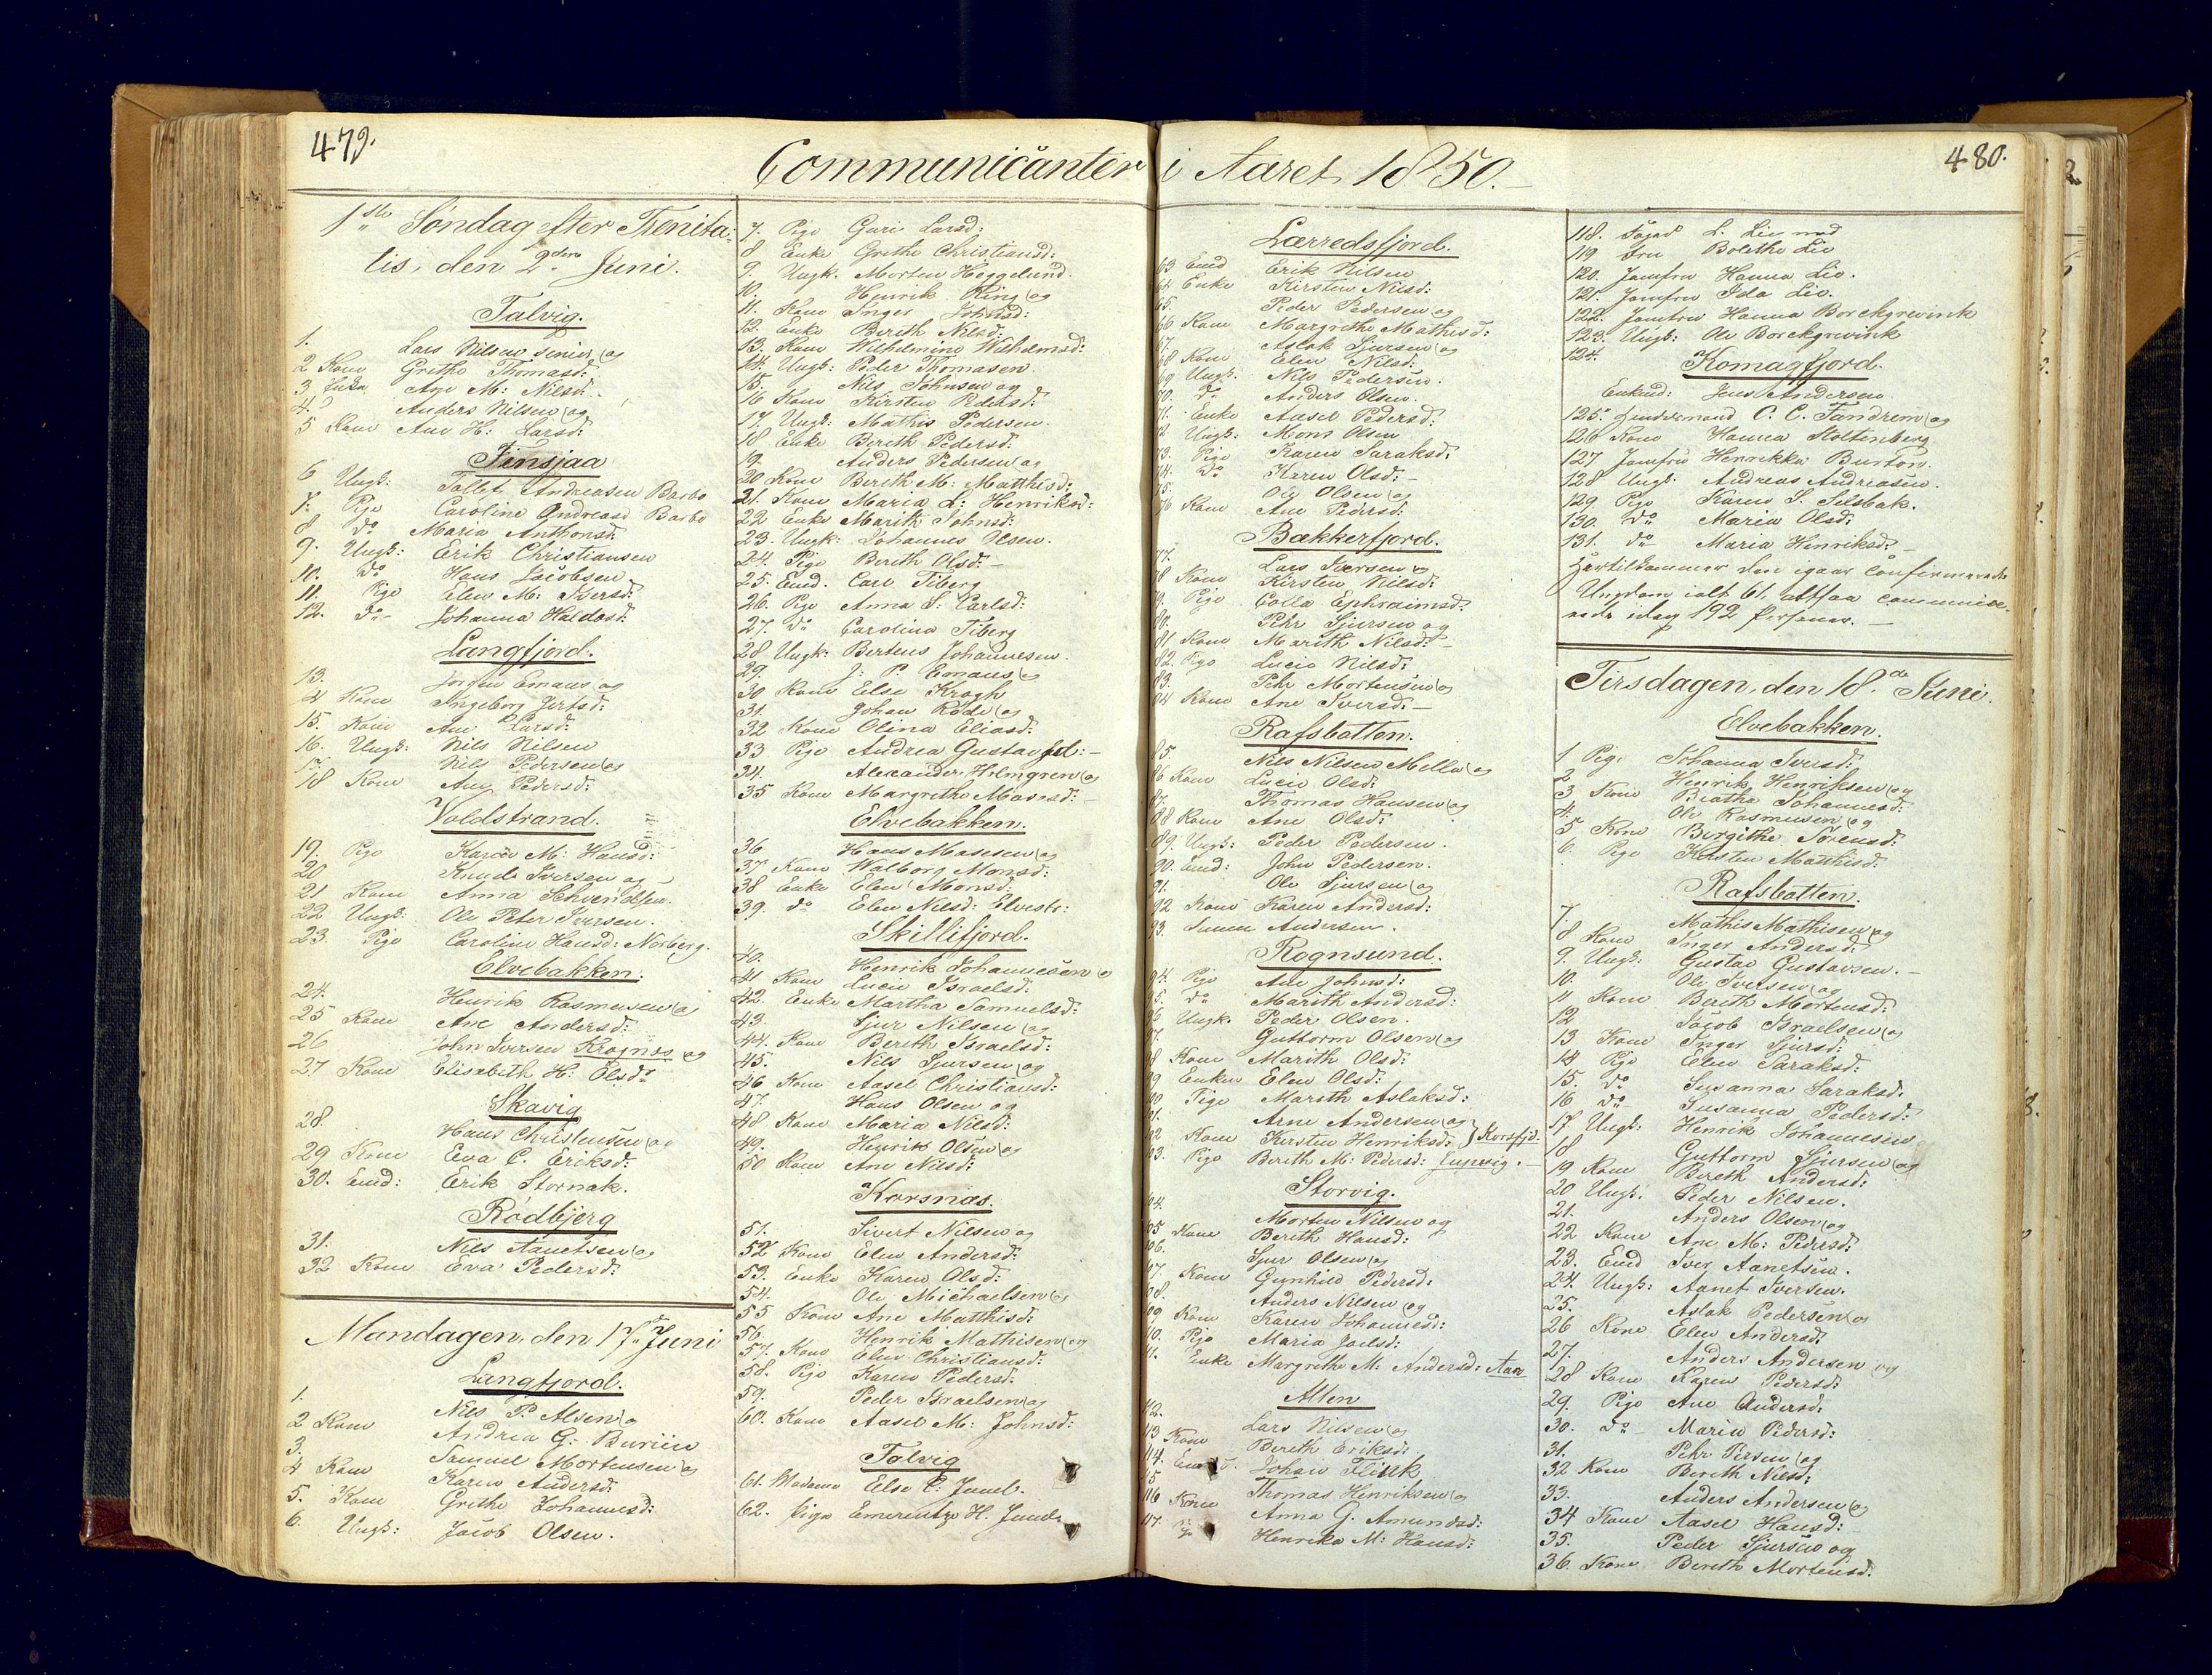 479.
Communicanter i Aaret 1850.
480.
1ste Søndag efter Trenita-
tis, den 2den Juni.
Talvig.
1. Lars Nilsen senior og
2 Kone Grethe Thomasd:
3 Enke Ane M: Nilsd:
4. Anders Nilsen og
5 Kone Ane H: Larsd:
Finsjaa
6 Ungk: Tollef Andreasen Barbo
7. Pige Caroline Andreasd Barbo
8 do Maria Anthonsd:
9. Ungk: Erik Christiansen
10. do Hans Jacobsen
11. Pige Elen M: Iversd:
12. do Johanna Haldosd:
Langfjord.
13. Jørgen Emaus og
14 Kone Ingeborg
15. Kone Ane Larsd:
16. Ungk: Nils Nilsen
17. Nils Pedersen og
18 Kone Ane Pedersd:
Voldstrand.
19. Pige Karen M: Hansd:
20 Knude Iversen og
21 Kone Anna Schvendsen.
22 Ungk: Ole Peter Iversen.
23. Pige Caroline Hansd: Norberg.
Elvebakken.
24. Henrik Rasmussen og
25 Kone Ane Andersd:
26 John Iversen Kragnæs og
27 Kone Elisabeth H: Olsd:
Skavig
28. Hans Christensen og
29 Kone Eva C. Eriksd:
30. Emd: Erik Stornak.
Rødbjerg
31. Nils Aanetsen og
32 Kone Eva Pedersd:
Mandagen, den 17de Juni
Langfjord.
1. Nils P. Alsen og
2 Kone Andrea G: Buriin
3. Samuel Mortensen og
4 Kone Karen Andersd:
5. Kone Grethe Johannesd:
6. Ungk: Jacob Olsen.
7. Pige Guri Larsd:
8 Enke Grethe Christiansd:
9. Ungk. Morten Heggelund.
10. Henrik Ring og
11. Kone Inger Johnsd:
12. Enke Berith Nilsd:
13. Kone Wilhelmine Wilhelmsd:
14. Ungk: Peder Thomasen
15. Nils Johnsen og
16 Kone Kirsten Pedersd:
17. Ungk: Mathis Pedersen.
18 Enke Berith Pedersd:
19. Anders Pedersen og
20 Kone Berith M: Matthisd:
21. Kone Maria L: Henriksd:
22 Enke Marith Johnsd:
23. Ungk: Johannes Olsen.
24. Pige Berith Olsd: -
25. Emd. Carl Tiberg
26. Pige Anna S: Carlsd:
27. do Carolina Tiberg
28 Ungk: Berteus Johannesen.
29. J: P. Emaus og
30 Kone Else Krogh
31. Johan Rode og
32 Kone Olina Eliasd:
33 Pige Andrea Gustavsd: -
34. Alexander Holmgren og
35 Kone Margrethe Monsd: -
Elvebakken.
36 Hans Monsen og
37 Kone Walborg Monsd:
38 Enke Elen Monsd:
39. do Elen Nilsd: Elvestr:
Skillifjord.
40. Henrik Johannesen og
41 Kone Lucie Israelsd:
42. Enke Martha Samuelsd:
43. Sjur Nilsen og
44. Kone Berith Israelsd:
45. Nils Sjursen og
46 Kone Aasel Christiansd:
47. Hans Olsen og
48 Kone Maria Nilsd:
49. Henrik Olsen og
50 Kone Ane Nilsd:
Korsnæs.
51. Sivert Nilsen og
52 Kone Elen Andersd:
53. Enke Karen Olsd:
54. Ole Michaelsen og
55 Kone Ane Matthisd:
56. Henrik Mathisen og
57. Kone Elen Christiansd:
58. Pige Karen Pedersd:
59. Peder Israelsen og
60. Kone Aasel M: Johnsd:
Talvig
61. Madame Else C: Juul.
62. Pige Emerentze H. Juul
Lærredsfjord.
63 Emd Erik Nilsen
64 Enke Kirsten Nilsd:
65. Peder Pedersen og
66 Kone Margrethe Mathisd:
67. Aslak Sjursen og
68 Kone Elen Nilsd:
69 Ungk: Nils Pedersen.
70. do Anders Olsen.
71. Enke Aasel Pedersd:
72 Ungk: Mons Olsen
73. Pige Karen Saraksd:
74. do Karen Olsd: -
75. Ole Olsen og
76 Kone Ane Pedersd:
Bækkerfjord.
77. Lars Iversen og
78 Kone Kirsten Nilsd:
79. Pige Golla Ephraimsd:
80. Pehr Sjursen og
81 Kone Marith Nilsd: -
82. Pige Lucie Nilsd:
83. Pehr Mortensen og
84 Kone Ane Iversd: -
Rafsbotten.
85. Nils Nilsen Mella og
86 Kone Lucie Olsd:
87. Thomas Hansen og
88 Kone Ane Olsd:
89. Ungk: Peder Pedersen.
90. Emd: John Pedersen.
91. Ole Sjursen og
92 Kone Karen Andersd:
93. Simon Andersen.
Rognsund.
94. Pige Ane Johnsd:
95. do Marith Andersd:
96 Ungk. Peder Olsen.
97. Guttorm Olsen og
98 Kone Marith Olsd:
99 Enken Elen Olsd:
100 Pige Marith Aslaksd:
101. Arne Andersen og
102 Kone Kirsten Henriksd: } Korsfjd:
103. Pige Berith M: Pedersd:
Storvig.
104. Morten Nilsen og
105 Kone Berith Hansd:
106. Sjur Olsen og
107. Kone Gunhild Pedersd:
108. Anders Nilsen og
109 Kone Karen Johannesd:
110. Pige Maria Joelsd:
111. Enke Margrethe M: Andersd: Aar
Alten
112. Lars Nilsen og
113 Kone Berith Eriksd:
114. Emd Johan Flink
115 Thomas Henriksen og
116 Kone Anna G. Amundsd:
117. Pige Henrika M: Hansd:
118. Foged L. Lie med
119 Fru Bolethe Lie
120. Jomfru Hanna Lie.
121. Jomfru Ida Lie.
122. Jomfru Hanna Borchgrevink
123. Ungk: Ole Borchgrevink
124. Komagfjord.
Enkmd: Jens Andersen
125. Lendsmand O. C. Fandrem og
126 Kone Hanna Stoltenberg
127 Jomfru Henrikka Burton.
128 Ungk. Andreas Andreasen.
129 Pige Karen S. Silsbak.
130. do Maria Olsd:
131. do Maria Henriksd: -
Hertilkommer den igaar confirmerede
Ungdom ialt 61, altsaa communice-
rede idag 192 Personer. -
Tirsdagen, den 18de Juni.
Elvebakken.
1 Pige Johanna Iversd:
2 Henrik Henriksen og
3 Kone Beatha Johannesd:
4. Ole Rasmussen og
5 Kone Birgithe Sørensd:
6. Pige Kirsten Matthisd:
Rafsbotten.
7. Mathis Mathisen og
8 Kone Inger Andersd:
9. Ungk: Gustav Gustavsen. -
10. Ole Iversen og
11 Kone Berith Mortensd:
12 Jacob Israelsen og
13 Kone Inger Sjursd:
14 Pige Elen Saraksd:
15. do Susanna Saraksd:
16 do Susanna Pedersd:
17 Ungk: Henrik Johannesen
18 Guttorm Sjursen og
19 Kone Berith Andersd:
20 Ungk. Peder Nilsen.
21. Anders Olsen og
22 Kone Ane M: Pedersd:
23. Emd Iver Aanetsen.
24. Ungk: Aanet Iversen.
25. Aslak Pedersen og
26 Kone Elen Andersd:
27. Anders Andersen og
28 Kone Karen Pedersd:
29. Pige Ane Andersd:
30. do Maria Pedersd:
31. Pehr Persen og
32 Kone Berith Nilsd:
33. Anders Andersen og
34 Kone Aasel Hansd:
35. Peder Sjursen og
36. Kone Berith Mortensd.